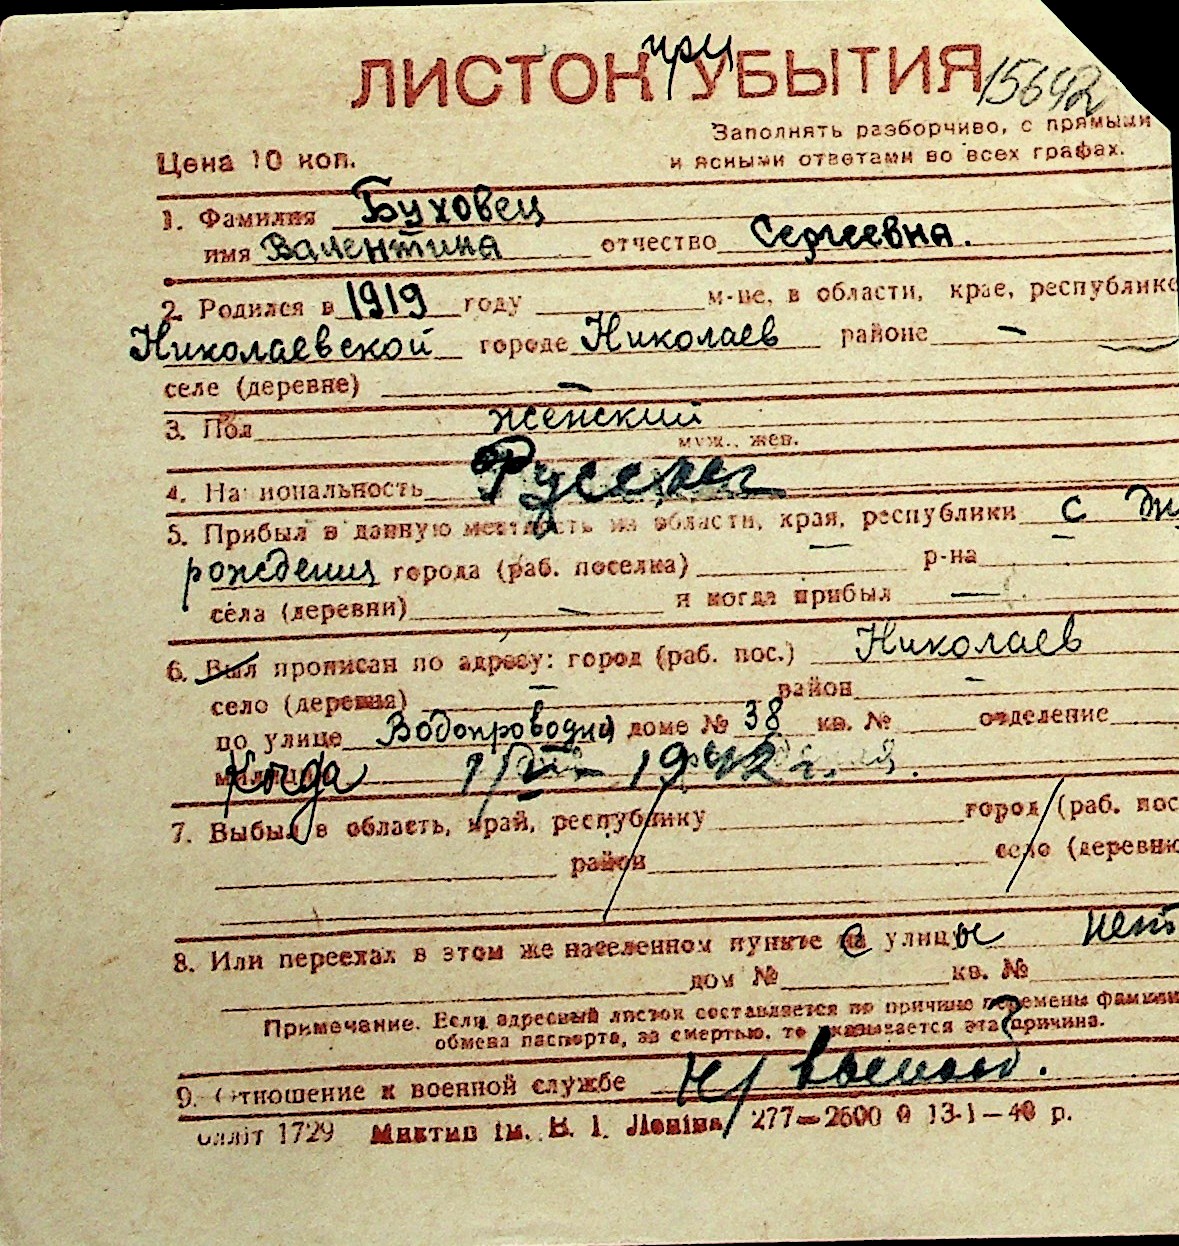 ЛИСТОК при УБЫТИЯ 15642
Заполнять разборчиво, с прямыми
и ясными ответами во всех графах.
Цена 10 коп.
1. Фамилия Буховец
имя Валентина отчество Сергеевна.
2. Родился в 1919 году м-це, в области, крае, республике
Николаевской городе Николаев районе —
селе (деревне) —
3. Пол женский
муж., жен.
4. Национальность Русская
5. Прибыл в данную местность из области, края, республики с дн
рождения города (раб. поселка) — р-на —
села (деревни) — и когда прибыл —
6. Был прописан по адресу: город (раб. пос.) Николаев
село (деревня) — район —
по улице Водопроводна доме № 38 кв. № отделение
милиции Когда 1942 г.
7. Выбыл в область, край, республику город (раб. пос
район село (деревню
8. Или переехал в этом же населенном пункте на с улицы нет
дом № кв. №
Примечание. Если адресный листок составляется по причине перемены фамилии
обмена паспорта, за смертью, то указывается эта причина.
9. Отношение к военной службе н/военооб.
Облліт 1729 Миктип ім. В. І. Леніна 277—2600 0 13-1—40 р.